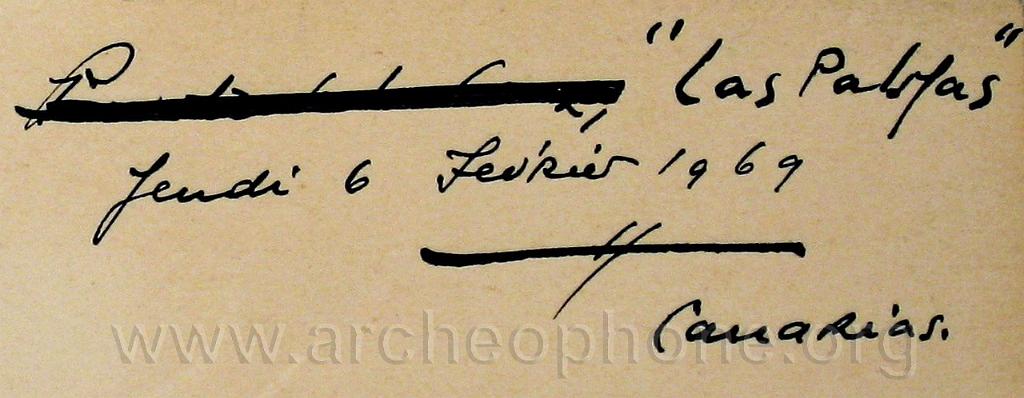 "Las Palmas"
Jeudi 6 Fevrier 1969
Canarias.
www.archeophone.org